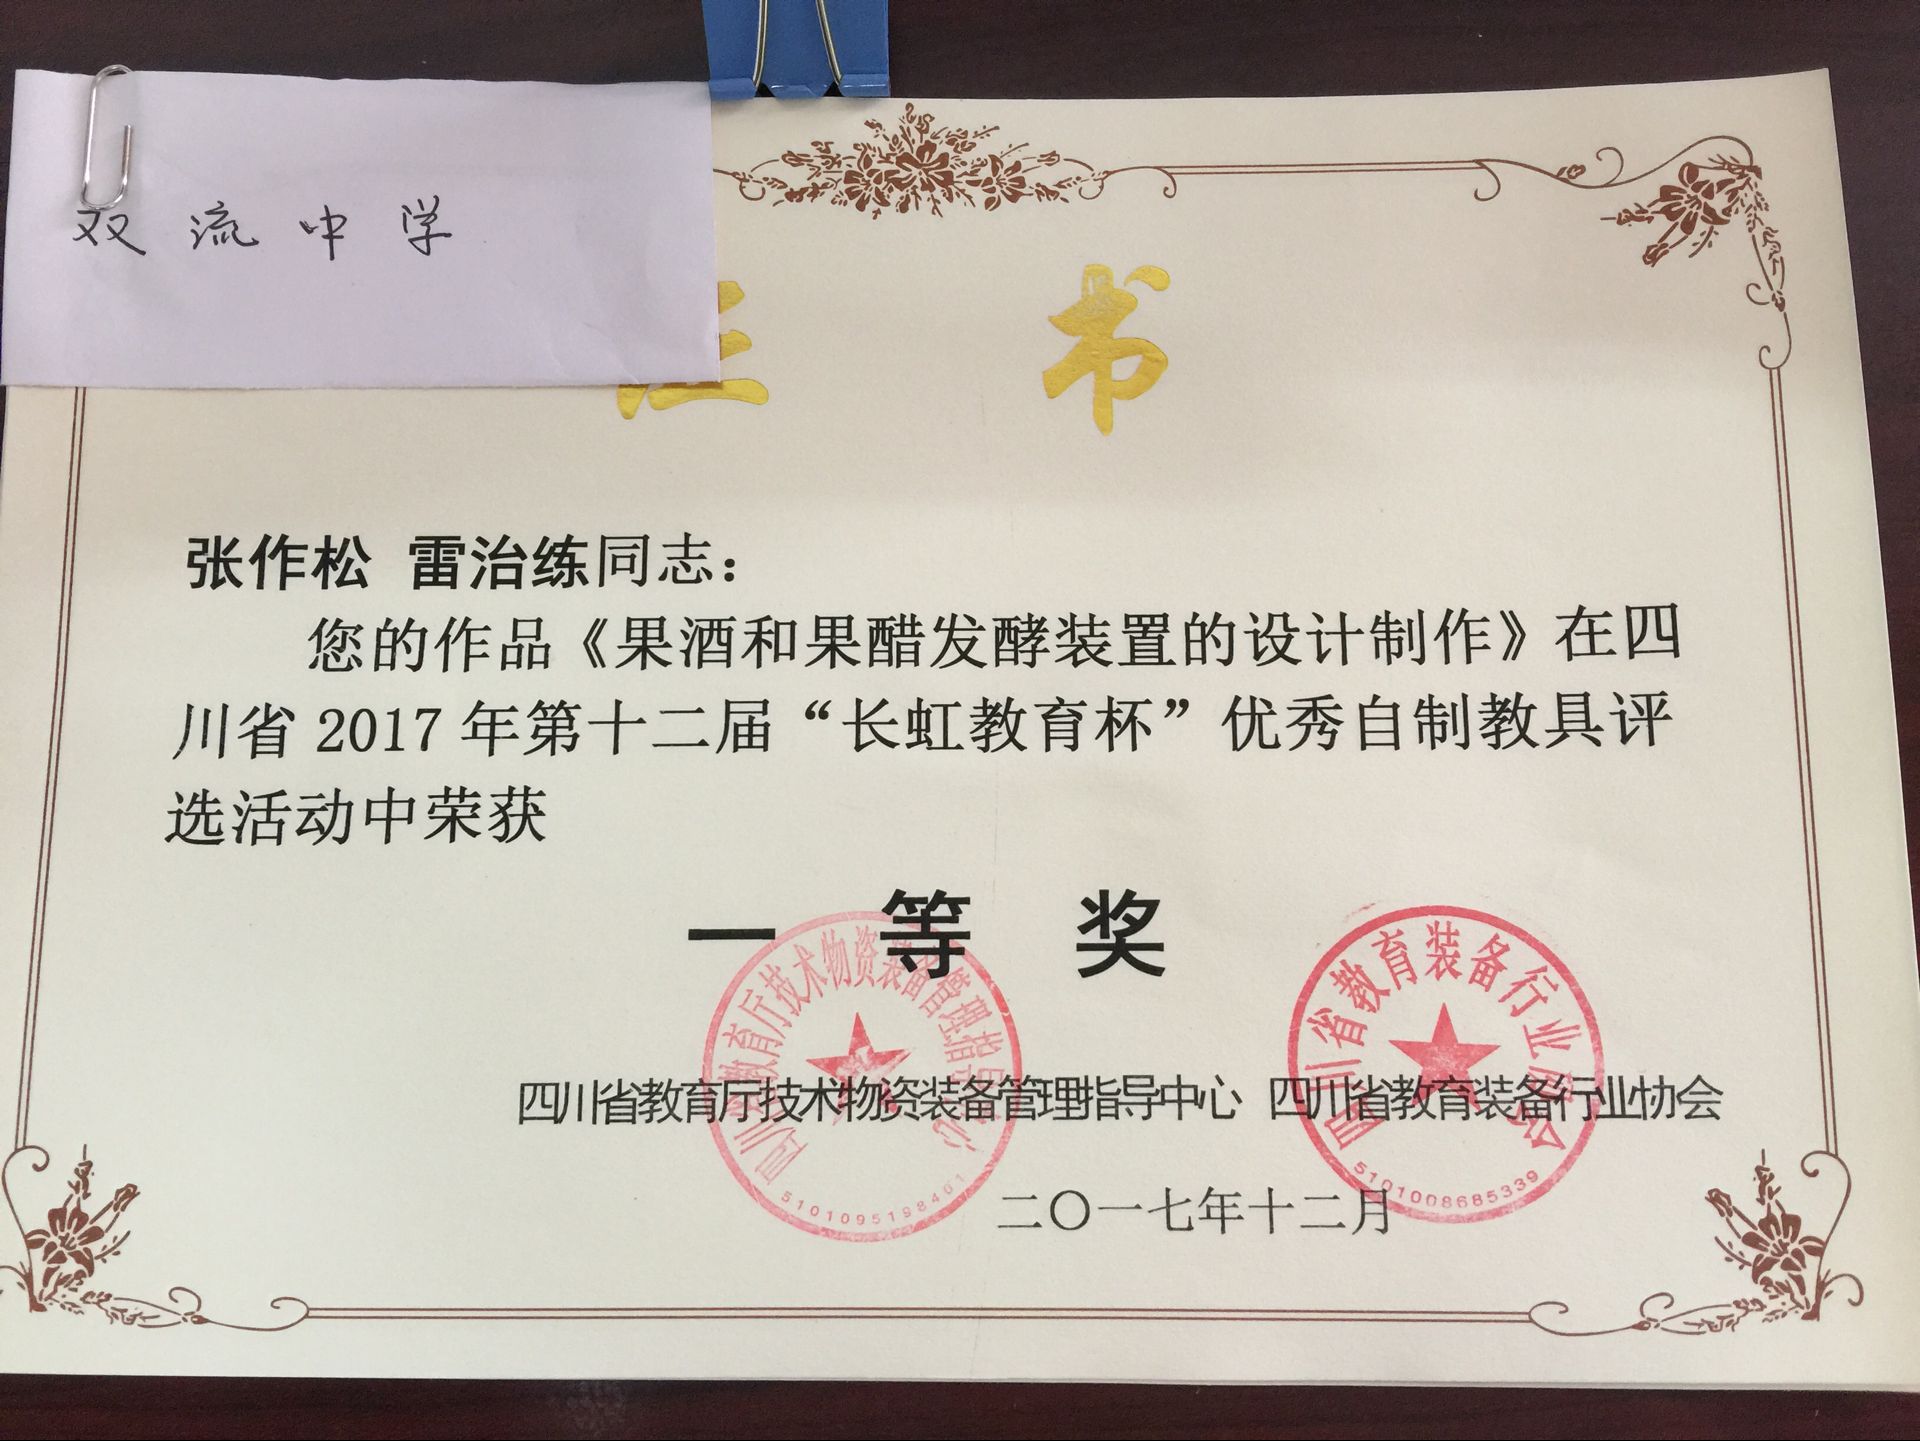 双流中学
证书
张作松 雷治练同志：
您的作品《果酒和果醋发酵装置的设计制作》在四
川省 2017 年第十二届“长虹教育杯”优秀自制教具评
选活动中荣获
一等奖
四川省教育厅技术物资装备管理指导中心 四川省教育装备行业协会
二〇一七年十二月
四川省教育厅技术物资装备管理指导中心
5101095198461
四川省教育装备行业协会
5101008685339